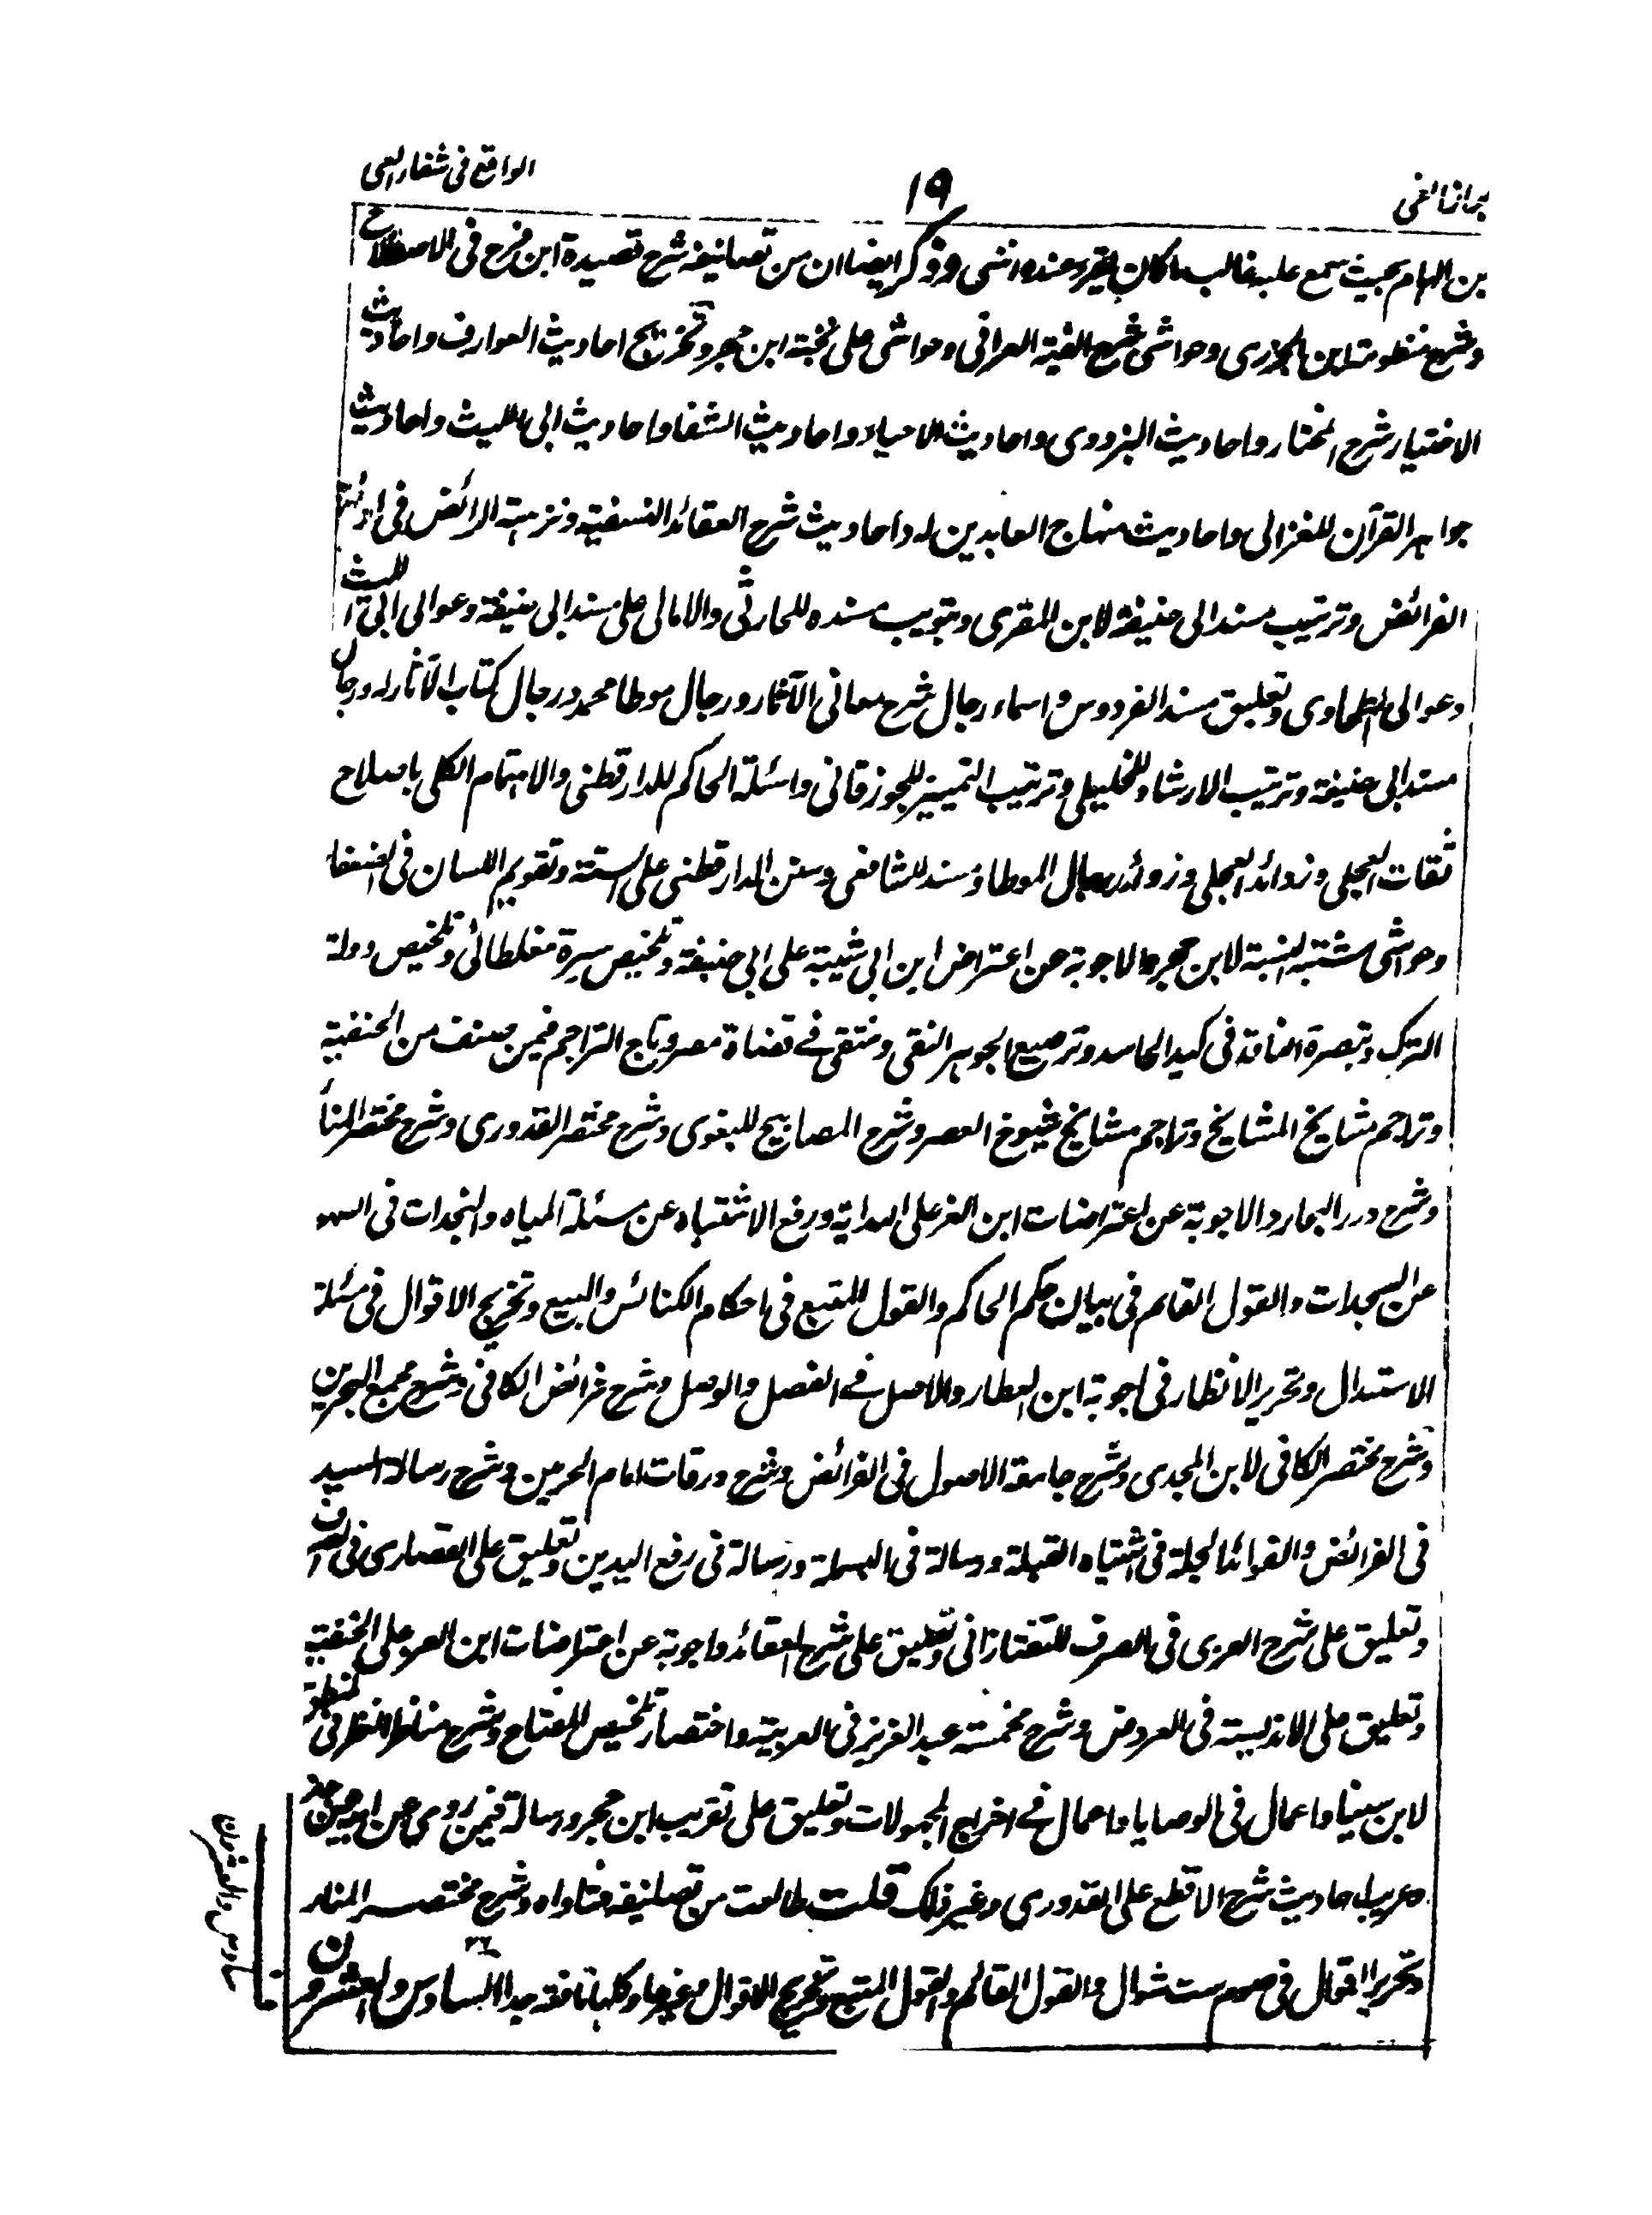 ابراز الغی
١٩
الواقع فی شفاء العی
بن الہام بحیث سمع علیہ غالب ما کان یقرء عندہ انتہی وذکر ایضا ان من تصانیفہ شرح قصیدۃ ابن فرح فی الاصطلاح
وشرح منظومۃ ابن الجزری وحواشی شرح الفیۃ العراقی وحواشی علی نخبۃ ابن حجر وتخریج احادیث العوارف واحادیث
الاختیار شرح المختار واحادیث البزدوی واحادیث الاحیاء واحادیث الشفا واحادیث ابی اللیث واحادیث
جواہر القرآن للغزالی واحادیث منہاج العابدین لہ واحادیث شرح العقائد النسفیۃ ونزہۃ الرائض فی ادلۃ
الفرائض وترتیب مسند ابی حنیفۃ لابن المقری وتبویب مسندہ للحارثی والامالی علی مسند ابی حنیفۃ وعوالی ابی اللیث
وعوالی الطحاوی وتعلیق مسند الفردوس واسماء رجال شرح معانی الآثار ورجال موطا محمد ورجال کتاب الآثار لہ ورجال
مسند ابی حنیفۃ وترتیب الارشاد للخلیلی وترتیب التمییز للجوزقانی واسئلۃ الحاکم للدارقطنی والاہتمام الکلی باصلاح
ثقات العجلی وزوائد العجلی وزوائد رجال الموطا ومسند الشافعی وسنن الدارقطنی علی الستۃ وتقویم اللسان فی الضعفاء
وحواشی مشتبہ النسبۃ لابن حجر والاجوبۃ عن اعتراض ابن ابی شیبۃ علی ابی حنیفۃ وتلخیص سیرۃ مغلطائی وتلخیص دولۃ
الترک وتبصرۃ الناقد فی کید الحاسد وترصیع الجوہر النقی ومنتقی فے قضاۃ مصر وتاج التراجم فیمن صنف من الحنفیۃ
وتراجم مشایخ المشایخ وتراجم مشایخ شیوخ العصر وشرح المصابیح للبغوی وشرح مختصر القدوری وشرح مختصر المنار
وشرح درر البحار والاجوبۃ عن اعتراضات ابن العز علی الہدایۃ ورفع الاشتباہ عن مسئلۃ المیاہ والنجدات فی السہو
عن السجدات والقول القائم فی بیان حکم الحاکم والقول المتبع فی احکام الکنائس والبیع وتخریج الاقوال فی مسئلۃ
الاستبدال وتحریر الانظار فی اجوبۃ ابن العطار والاصل فے الفصل والوصل وشرح فرائض الکافی وشرح مجمع البحرین
وشرح مختصر الکافی لابن المجدی وشرح جامعۃ الاصول فی الفرائض وشرح ورقات امام الحرمین وشرح رسالۃ السید
فی الفرائض والفوائد الجلۃ فی اشتباہ القبلۃ ورسالۃ فی البسملۃ ورسالۃ فی رفع الیدین وتعلیق علی القصاری فی الصرف
وتعلیق علی شرح العزی فی الصرف للتفتازانی وتعلیق علی شرح العقائد واجوبۃ عن اعتراضات ابن العز علی الحنفیۃ
وتعلیق علی الاندلسیۃ فی العروض وشرح مخمسۃ عبد العزیز فی العربیۃ واختصار تلخیص المفتاح وشرح مناظر النظر فی المنطق
لابن سینا واعمال فی الوصایا واعمال فے اخراج المجہولات وتعلیق علی تقریب ابن حجر ورسالۃ فیمن روی عن ابیہ عن جدہ
وغریب احادیث شرح الاقطع علی القدوری وغیر ذلک قلت طالعت من تصانیفہ فتاواہ وشرح مختصر المنار
وتحریر الاقوال فی صوم ست شوال والقول القائم والقول المتبع وتخریج الاقوال وغیرہا وکلہا نافعۃ جدا السادس والعشرون ٢٦
سادس والعشرون